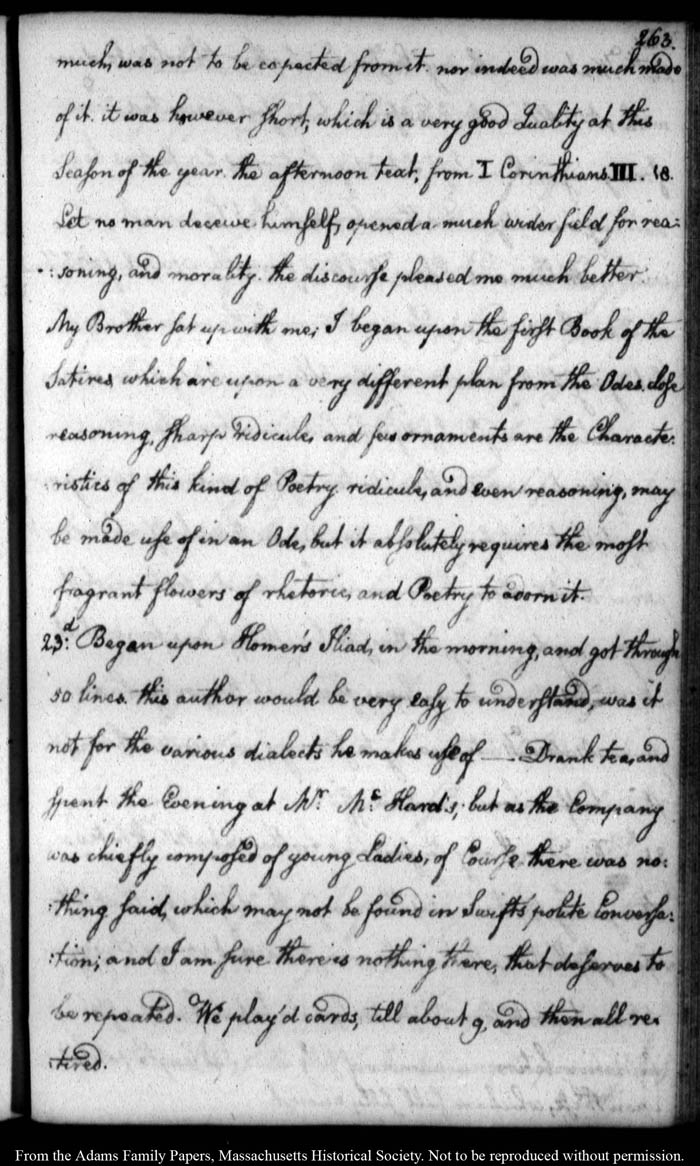 263.
much, was not to be expected from it. nor indeed was much made
of it. it was however short, which is a very good Quality at this
Season of the year. the afternoon text, from I Corinthians III. 18.
Let no man deceive himself, opened a much wider field for rea-
:soning, and morality. the discourse pleased me much better.
My Brother sat up with me; I began upon the first Book of the
Satires which are upon a very different plan from the Odes. close
reasoning, sharp ridicule, and few ornaments are the Characte:
:ristics of this kind of Poetry. ridicule, and even reasoning, may
be made use of in an Ode, but it absolutely requires the most
fragrant flowers of rhetoric, and Poetry to adorn it.
23.d Began upon Homer's Iliad, in the morning, and got through
50 lines. this author would be very easy to understand, was it
not for the various dialects he makes use of — Drank tea, and
spent the Evening at Mr. Mc. Hard's; but as the Company
was chiefly composed of young Ladies, of Course there was no:
:thing said, which may not be found in Swift's polite Conversa:
:tion; and I am sure there is nothing there, that deserves to
be repeated. We play'd cards, till about 9, and then all re:
:tired.
From the Adams Family Papers, Massachusetts Historical Society. Not to be reproduced without permission.